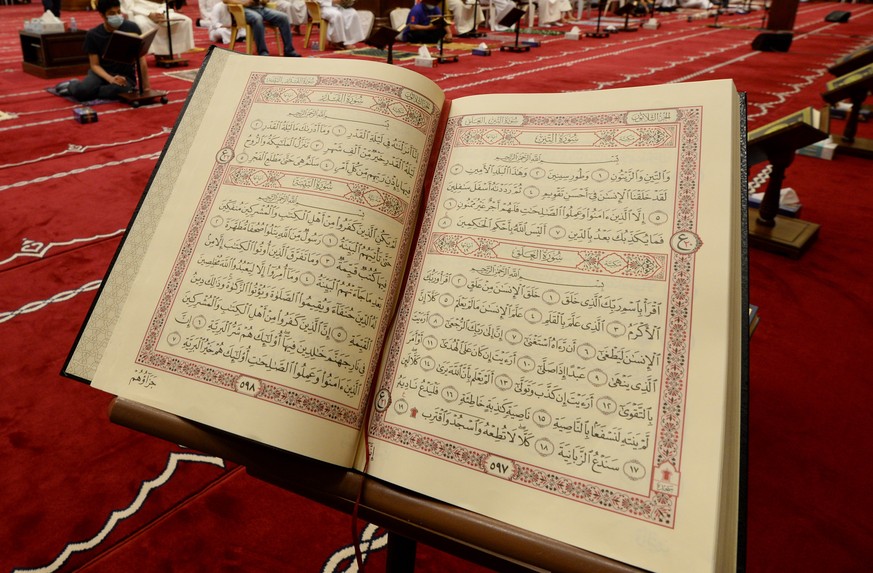 الجُزْءُ الثَّلَاثُونَ
سُورَةُ التِّينِ - العَلَقِ
سُورَةُ التِّينِ
بِسْمِ ٱللَّهِ ٱلرَّحْمَٰنِ ٱلرَّحِيمِ
وَٱلتِّينِ وَٱلزَّيْتُونِ ١ وَطُورِ سِينِينَ ٢ وَهَٰذَا ٱلْبَلَدِ ٱلْأَمِينِ ٣
لَقَدْ خَلَقْنَا ٱلْإِنسَٰنَ فِىٓ أَحْسَنِ تَقْوِيمٍ ٤ ثُمَّ رَدَدْنَٰهُ أَسْفَلَ سَٰفِلِينَ
٥ إِلَّا ٱلَّذِينَ ءَامَنُوا۟ وَعَمِلُوا۟ ٱلصَّٰلِحَٰتِ فَلَهُمْ أَجْرٌ غَيْرُ مَمْنُونٍ ٦
فَمَا يُكَذِّبُكَ بَعْدُ بِٱلدِّينِ ٧ أَلَيْسَ ٱللَّهُ بِأَحْكَمِ ٱلْحَٰكِمِينَ ٨
سُورَةُ العَلَقِ
بِسْمِ ٱللَّهِ ٱلرَّحْمَٰنِ ٱلرَّحِيمِ
ٱقْرَأْ بِٱسْمِ رَبِّكَ ٱلَّذِى خَلَقَ ١ خَلَقَ ٱلْإِنسَٰنَ مِنْ عَلَقٍ ٢ ٱقْرَأْ وَرَبُّكَ
ٱلْأَكْرَمُ ٣ ٱلَّذِى عَلَّمَ بِٱلْقَلَمِ ٤ عَلَّمَ ٱلْإِنسَٰنَ مَا لَمْ يَعْلَمْ ٥ كَلَّآ إِنَّ
ٱلْإِنسَٰنَ لَيَطْغَىٰٓ ٦ أَن رَّءَاهُ ٱسْتَغْنَىٰٓ ٧ إِنَّ إِلَىٰ رَبِّكَ ٱلرُّجْعَىٰٓ ٨ أَرَءَيْتَ
ٱلَّذِى يَنْهَىٰ ٩ عَبْدًا إِذَا صَلَّىٰٓ ١٠ أَرَءَيْتَ إِن كَانَ عَلَى ٱلْهُدَىٰٓ ١١ أَوْ أَمَرَ
بِٱلتَّقْوَىٰٓ ١٢ أَرَءَيْتَ إِن كَذَّبَ وَتَوَلَّىٰٓ ١٣ أَلَمْ يَعْلَم بِأَنَّ ٱللَّهَ يَرَىٰ ١٤ كَلَّا لَئِن
لَّمْ يَنتَهِ لَنَسْفَعًۢا بِٱلنَّاصِيَةِ ١٥ نَاصِيَةٍ كَٰذِبَةٍ خَاطِئَةٍ ١٦ فَلْيَدْعُ نَادِيَهُۥ
١٧ سَنَدْعُ ٱلزَّبَانِيَةَ ١٨ كَلَّا لَا تُطِعْهُ وَٱسْجُدْ وَٱقْتَرِب ۩ ١٩
٥٩٧
سُورَةُ القَدْرِ
بِسْمِ ٱللَّهِ ٱلرَّحْمَٰنِ ٱلرَّحِيمِ
إِنَّآ أَنزَلْنَٰهُ فِى لَيْلَةِ ٱلْقَدْرِ ١ وَمَآ أَدْرَىٰكَ مَا لَيْلَةُ ٱلْقَدْرِ ٢
لَيْلَةُ ٱلْقَدْرِ خَيْرٌ مِّنْ أَلْفِ شَهْرٍ ٣ تَنَزَّلُ ٱلْمَلَٰٓئِكَةُ وَٱلرُّوحُ
فِيهَا بِإِذْنِ رَبِّهِم مِّن كُلِّ أَمْرٍ ٤ سَلَٰمٌ هِىَ حَتَّىٰ مَطْلَعِ ٱلْفَجْرِ ٥
سُورَةُ البَيِّنَةِ
بِسْمِ ٱللَّهِ ٱلرَّحْمَٰنِ ٱلرَّحِيمِ
لَمْ يَكُنِ ٱلَّذِينَ كَفَرُوا۟ مِنْ أَهْلِ ٱلْكِتَٰبِ وَٱلْمُشْرِكِينَ مُنفَكِّينَ
حَتَّىٰ تَأْتِيَهُمُ ٱلْبَيِّنَةُ ١ رَسُولٌ مِّنَ ٱللَّهِ يَتْلُوا۟ صُحُفًا مُّطَهَّرَةً ٢
فِيهَا كُتُبٌ قَيِّمَةٌ ٣ وَمَا تَفَرَّقَ ٱلَّذِينَ أُوتُوا۟ ٱلْكِتَٰبَ إِلَّا مِنۢ
بَعْدِ مَا جَآءَتْهُمُ ٱلْبَيِّنَةُ ٤ وَمَآ أُمِرُوٓا۟ إِلَّا لِيَعْبُدُوا۟ ٱللَّهَ مُخْلِصِينَ
لَهُ ٱلدِّينَ حُنَفَآءَ وَيُقِيمُوا۟ ٱلصَّلَوٰةَ وَيُؤْتُوا۟ ٱلزَّكَوٰةَ وَذَٰلِكَ دِينُ
ٱلْقَيِّمَةِ ٥ إِنَّ ٱلَّذِينَ كَفَرُوا۟ مِنْ أَهْلِ ٱلْكِتَٰبِ وَٱلْمُشْرِكِينَ
فِى نَارِ جَهَنَّمَ خَٰلِدِينَ فِيهَآ أُو۟لَٰٓئِكَ هُمْ شَرُّ ٱلْبَرِيَّةِ ٦ إِنَّ
ٱلَّذِينَ ءَامَنُوا۟ وَعَمِلُوا۟ ٱلصَّٰلِحَٰتِ أُو۟لَٰٓئِكَ هُمْ خَيْرُ ٱلْبَرِيَّةِ ٧
جَزَآؤُهُمْ
٥٩٨